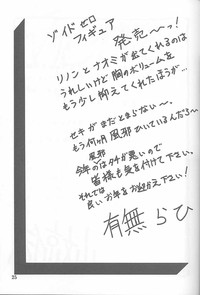 ゾイドゼロ
フィギュア
発売〜っ!
リノンとナオミが出てくれるのは
うれしいけど胸のボリュームを
もう少し抑えてくれたほうが…
セキがまだとまらない〜。
もう何日風邪ひいているんだろ〜
風邪
今年のはタチが悪いので
皆様も気を付けて下さい。
それでは
良いお年をお迎え下さい!
有無らひ
25